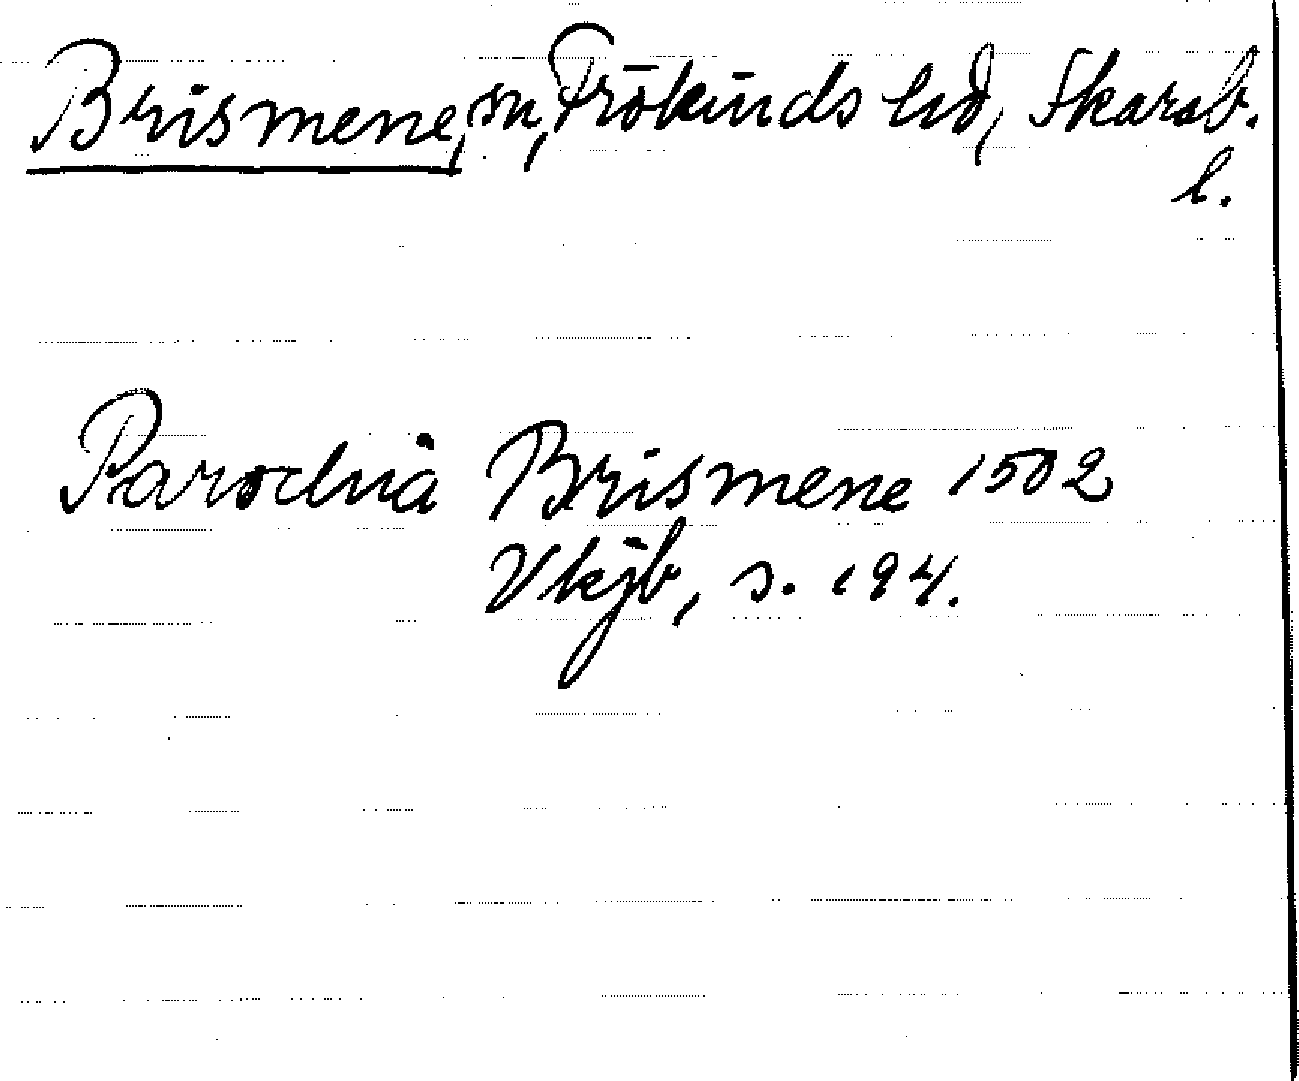 Brismene, sn, Frökinds hd, Skarab.
l.
Parochia Brismene 1502
Vkjb, s. 194.